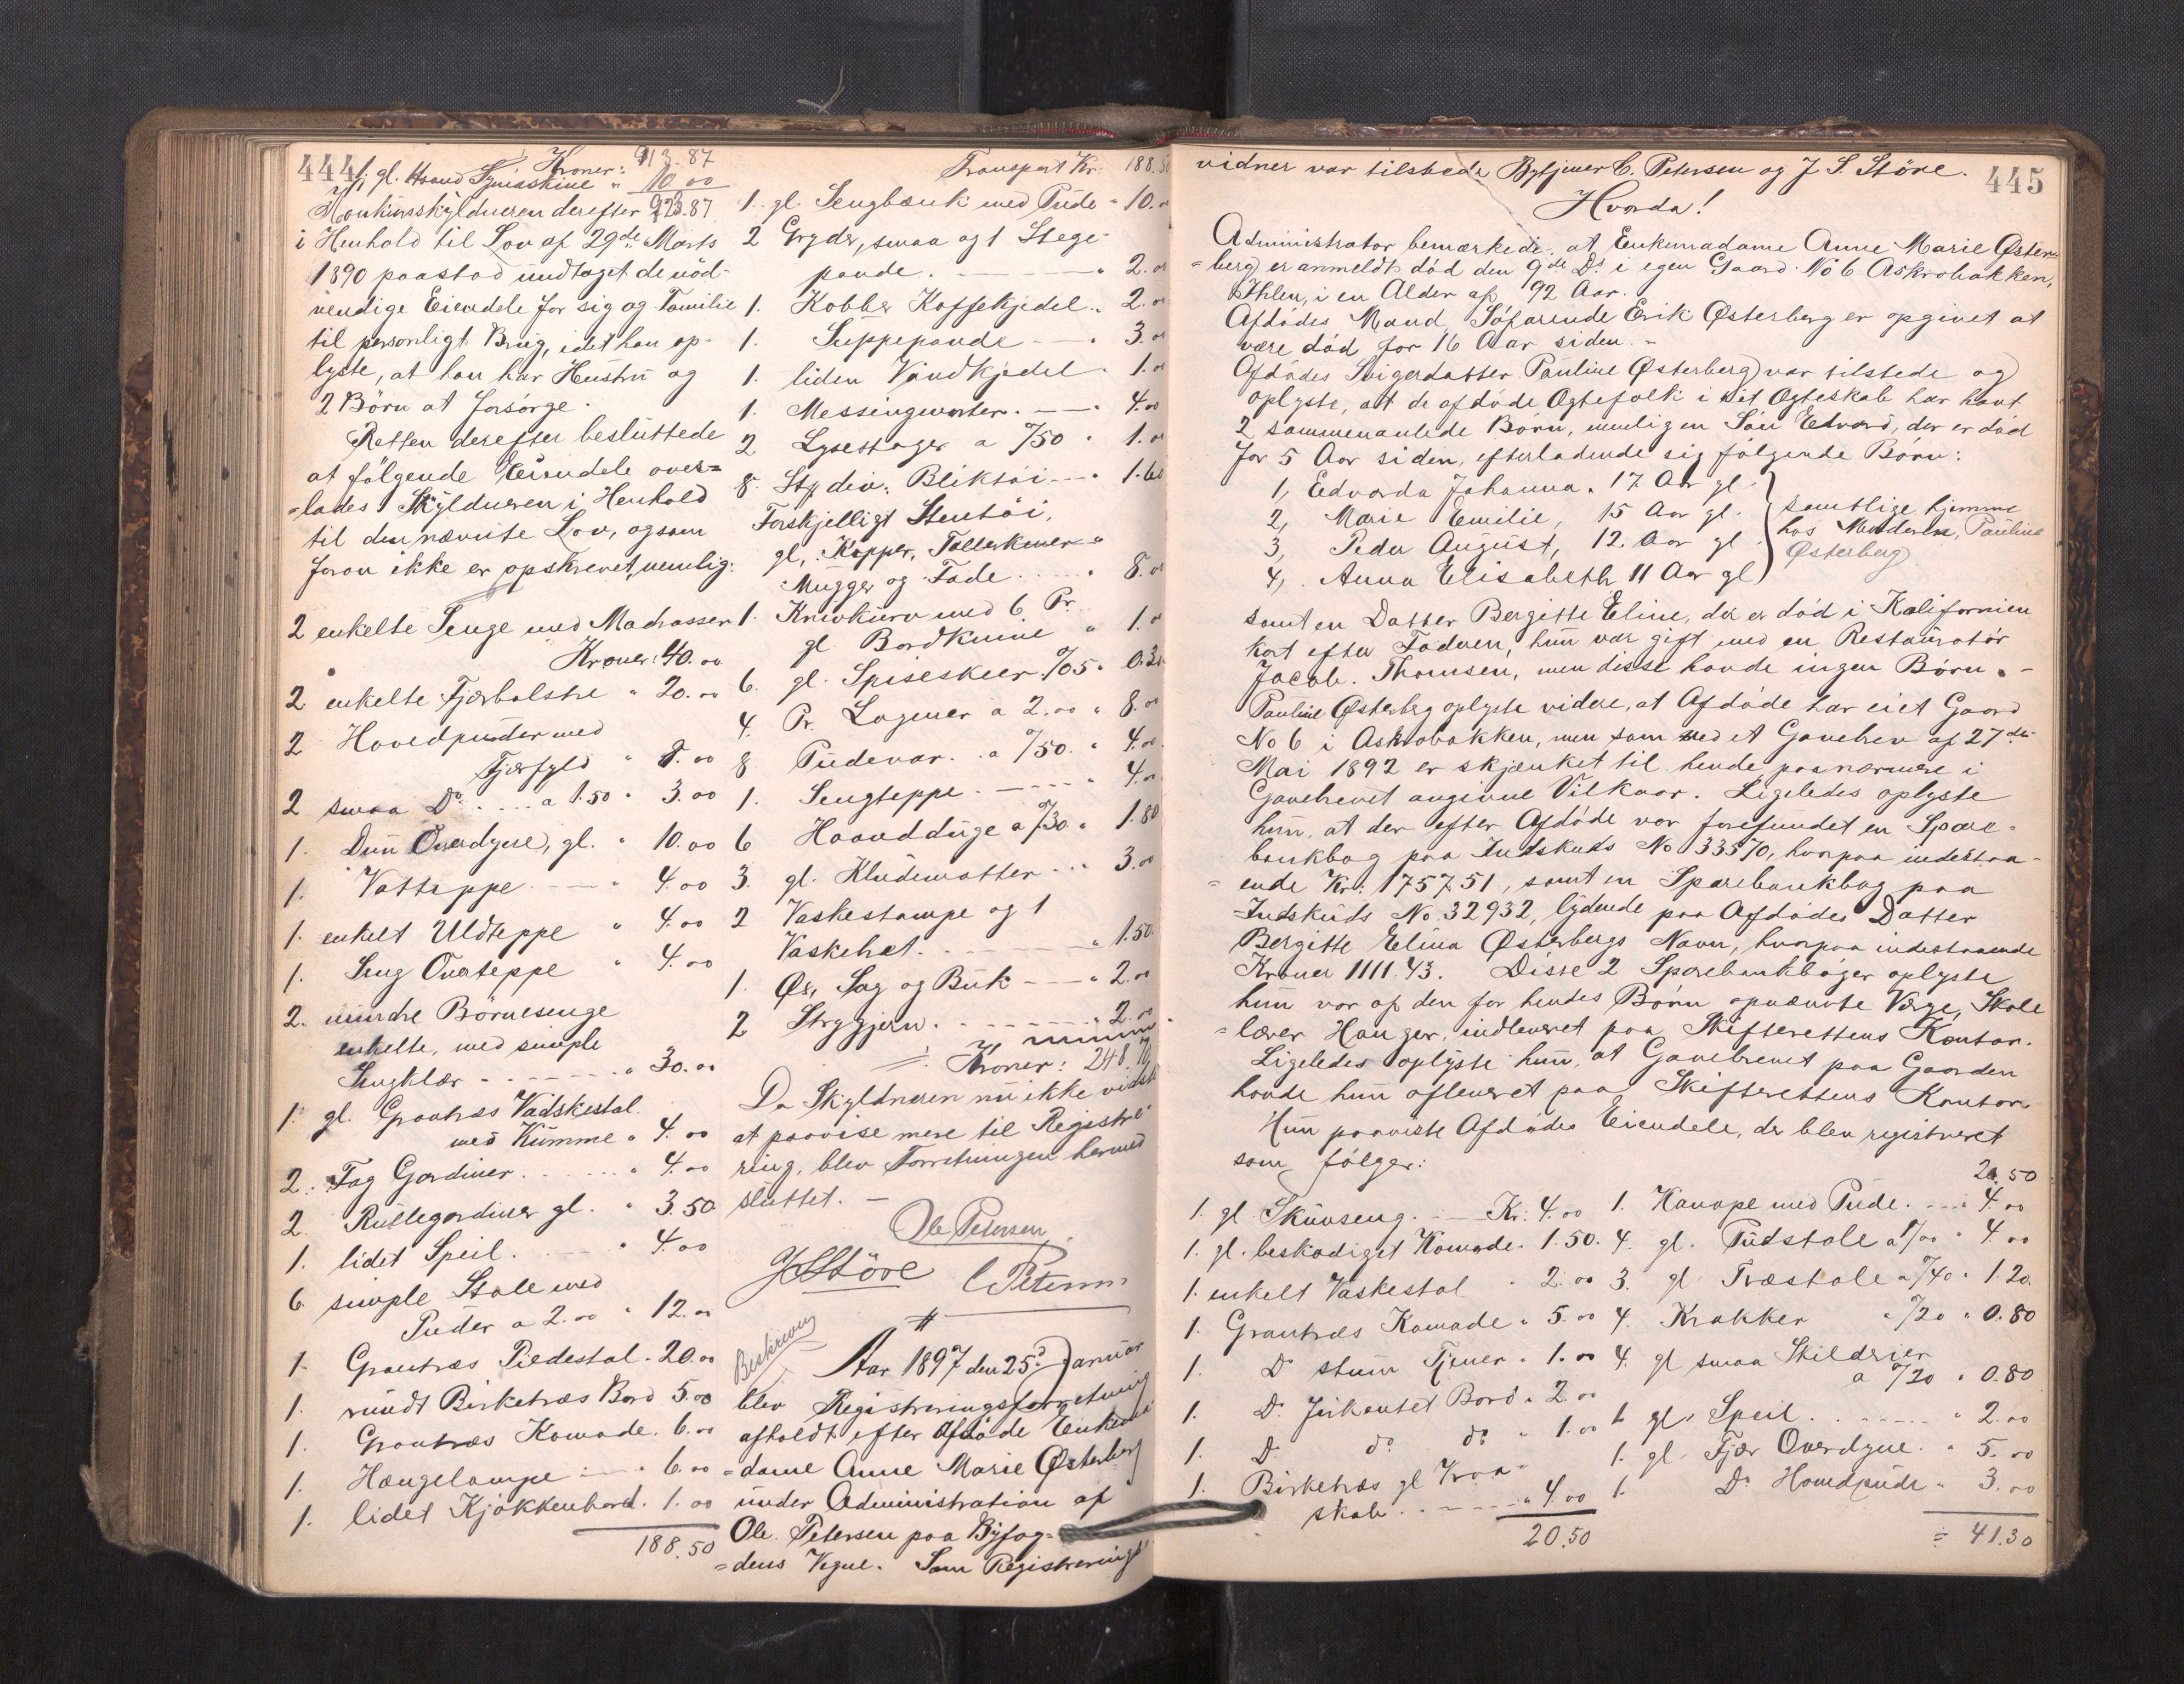 444
Kroner: 913.87
1. gl. Haand Symaskine " 10.00
Konkursskyldneren derefter 923.87
i Henhold til Lov af 29de Marts
1890 paastod undtaget de nöd-
vendige Eiendele for sig og Familie
til personligt Brug, idet han op-
lyste, at han har Hustru og
2 Börn at forsörge.
Retten derefter besluttede
at fölgende Eiendele over=
=lades Skyldneren i Henhold
til den nævnte Lov, og som
foran ikke er opskrevet, nemlig:
2 enkelte Senge med Madrasser
Kroner: 40.00
2 enkelte Fjærbolstre " 20.00
2 Hovedpuder med
Fjærfyld " 8.00
2 smaa Do. .... a 1.50 " 3.00
1. Dun Overdyne, gl. " 10.00
1. Vatteppe " 4.00
1. enkelt Uldteppe " 4.00
1. Seng Overteppe " 4.00
2. mindre Börnesenge
enkelte, med simple
Sengklær " 30.00
1. gl. Grantræs Vadskestol
med Kumme " 4.00
2. Fag Gardiner " 4.00
2. Rullegardiner gl. " 3.50
1. lidet Speil. " 4.00
6. simple Stole med
Puder a 2.00 " 12.00
1. Grantræs Piedestal. 20.00
1. rundt Birketræs Bord 5.00
1. Grantræs Komode. 6.00
1. Hængelampe " 6.00
1. lidet Kjökkenbord. 1.00
188.50
Transport Kr. 188.50
1. gl. Sengbænk med Pude " 10.00
2 Gryder, smaa og 1 Stege-
pande. " 2.00
1. Kobber Kaffekjedel " 2.00
1. Suppepande " 3.00
1. liden Vandkjedel " 1.00
1. Messingmorter. " 4.00
2 Lysestager a "/50 " 1.00
8. Stp div. Bliktöi " 1.60
Forskjelligt Stentöi,
gl, Kopper, Tallerkener
Mugger og Fade " 8.00
1. Knivkurv med 6 Pr.
gl. Bordknive " 1.00
6. gl. Spiseskeer "/05 " 0.30
4. Pr. Lagener a 2.00 " 8.00
8 Pudevar. a "/50. " 4.00
1. Sengteppe " 4.00
6 Haandduge a "/30 " 1.80
3. gl. Kludematter " 3.00
2 Vaskestampe og 1
Vaskebret. " 1.50
1. Öx, Sag og Buk " 2.00
2 Strygjern. " 2.00
Kroner: 248.70
Da Skyldneren nu ikke vidste
at paavise mere til Registre-
ring, blev Forretningen hermed
sluttet. —
Ole Petersen
J S Störe C Petersen
Beskreven
Aar 1897 den 25de Januar
blev Registreringsforretning
afholdt efter Afdöde Enkema-
=dame Anne Marie Østerberg
under Administration af
Ole Petersen paa Byfog=
=dens Vegne. Som Registrerings
445
vidner var tilstede Bytjener C. Petersen og J S. Störe.
Hvorda!
Administrator bemærkede, at Enkemadame Anne Marie Øster=
=berg er anmeldt död den 9de Ds i egen Gaard No 6 Askrobakken,
Ihlen, i en Alder af 92 Aar.
Afdödes Mand, Söfarende Erik Østerberg er opgivet at
være död for 16 Aar siden. -
Afdödes Svigerdatter Pauline Østerberg var tilstede og
oplyste, at de afdöde Ægtefolk i sit Ægteskab har havt
2 sammenavlede Börn, nemlig en Sön Edvard, der er död
for 5 Aar siden, efterladende sig fölgende Börn:
1, Edvarda Johanna. 17 Aar gl.
2, Marie Emilie, 15 Aar gl.
3, Peder August, 12 Aar gl.
4, Anna Elisabeth 11 Aar gl
samtlige hjemme
hos Moderen, Pauline
Østerberg
samt en Datter Bergitte Eline, der er död i Kalifornien
kort efter Faderen, hun var gift med en Restauratör
Jacob. Thomsen, men disse havde ingen Börn. -
Pauline Østerberg oplyste videre, at Afdöde har eiet Gaard
No 6 i Askrobakken, men som ved et Gavebrev af 27de
Mai 1892 er skjænket til hende paa nærmere i
Gavebrevet angivne Vilkaar. Ligeledes oplyste
hun, at der efter Afdöde var forefundet en Spare-
bankbog paa Indskuds No 33570, hvorpaa indestaa-
=ende Kr: 1757.51, samt en Sparebankbog paa
Indskuds No 32932, lydende paa Afdödes Datter
Bergitte Elina Østerbergs Navn, hvorpaa indestaaende
Kroner 1111.43. Disse 2 Sparebankböger oplyste
hun var af den for hendes Börn opnævnte Værge, Skole
=lærer Hanger, indleveret paa Skifterettens Kontor.
Ligeledes oplyste hun, at Gavebrevet paa Gaarden
havde hun afleveret paa Skifterettens Kontor
Hun paaviste Afdödes Eiendele, der blev registreret
som fölger:
1. gl Skuvseng. Kr: 4.00
1. gl. beskadiget Komode. 1.50.
1. enkelt Vaskestol " 2.00
1. Grantræs Komode " 5.00
1. Do stum Tjener " 1.00
1. Do firkantet Bord " 2.00
1. Do do do " 1.00
1. Birketræs gl Vraa-
skab. " 4.00
20.50
20.50
1. Kanape med Pude. " 4.00
4. gl. Pudstole a 1/00 " 4.00
3. gl Træstole a "/40 " 1.20
4. Krakker " "/20 " 0.80
4. gl smaa Skilderier
a "/20 " 0.80
1 gl. Speil. " 2.00
1. gl. Fjær Overdyne. " 5.00
1. Do Hovedpude " 3.00
= 41.30